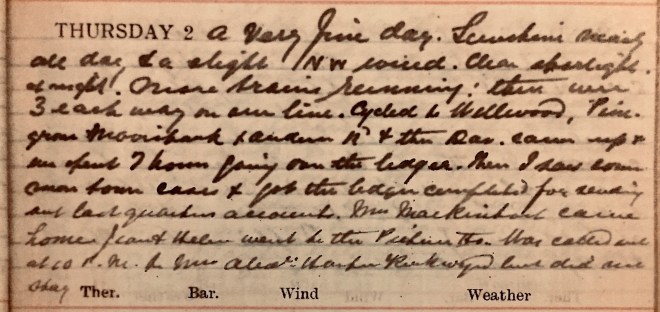 THURSDAY 2 A very fine day. Sunshine nearly
all day & a slight NW wind. Clear starlight
at night. More trains running; there were
3 each way on our line. Cycled to Wellwood, Pine-
grove Moorbank & Rd & the Dav. came up &
we spent 7 hours going over the ledger. Then I saw some
more town cases & got the ledger completed for sending
out last quarters accounts. Mrs Mackintosh came
home. Jean & Helen went to the Picture Ho. Was called out
at 10 P.M. to Mrs Alexr. Harper but did not
stay
Ther. Bar. Wind Weather